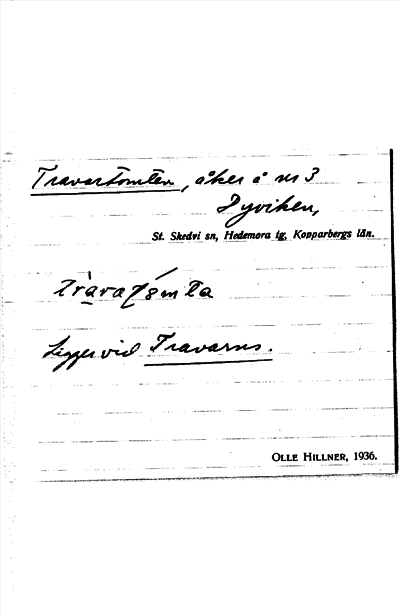 Travartomten, åker å nr 3
Dyviken,
St. Skedvi sn, Hedemora tg, Kopparbergs län.
Ligger vid Travarns.
OLLE HILLNER, 1936.